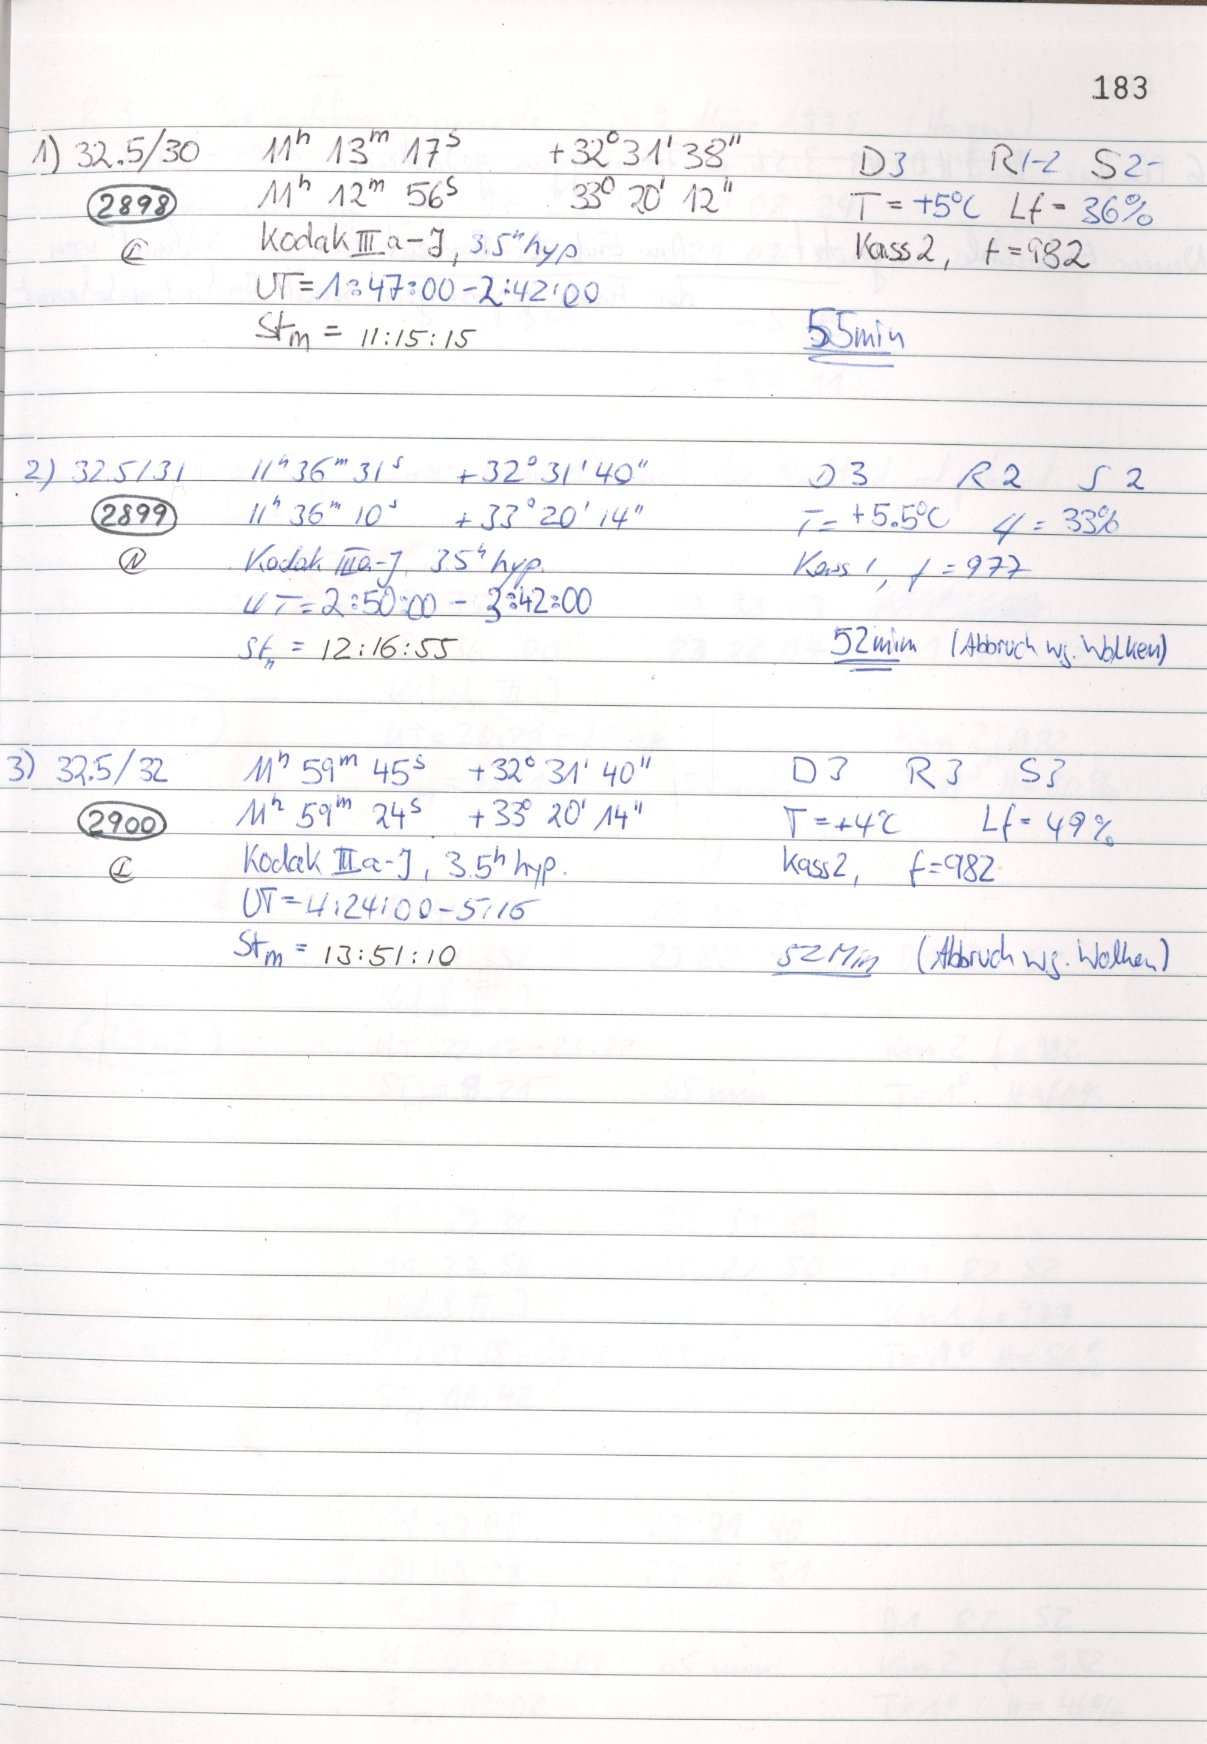 183
1) 32.5/30 11ʰ 13ᵐ 17ˢ +32° 31' 38" D3 R1-2 S2-
2898 11ʰ 12ᵐ 56ˢ 33° 20' 12" T = +5°C Lf = 36%
Kodak III a-J, 3.5ʰ hyp Kass 2, f = 982
UT = 1:47:00 - 2:42:00
Stm = 11:15:15 55min
2) 32.5/31 11ʰ 36ᵐ 31ˢ +32° 31' 40" D3 R2 S2
2899 11ʰ 36ᵐ 10ˢ +33° 20' 14" T = +5.5°C Lf = 33%
Kodak IIIa-J, 35ʰ hyp. Kass 1, f = 977
UT = 2:50:00 - 3:42:00
Stm = 12:16:55 52min (Abbruch wg. Wolken)
3) 32.5/32 11ʰ 59ᵐ 45ˢ +32° 31' 40" D3 R3 S3
2900 11ʰ 59ᵐ 24ˢ +33° 20' 14" T = +4°C Lf = 49%
Kodak III a-J, 3.5ʰ hyp. Kass 2, f = 982
UT = 4:24:00 - 5:16
Stm = 13:51:10 52 Min (Abbruch wg. Wolken)